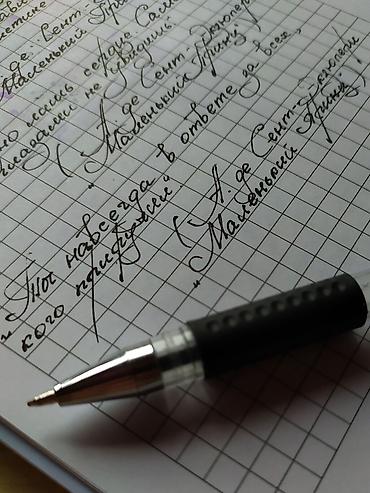 де Сент-
Маленький Принц
но лишь сердце
глазами не увидишь"
(А. де Сент-Экзюпери
"Маленький Принц")
"Ты навсегда в ответе за всех,
кого приручил"
(А. де Сент-Экзюпери
"Маленький Принц")